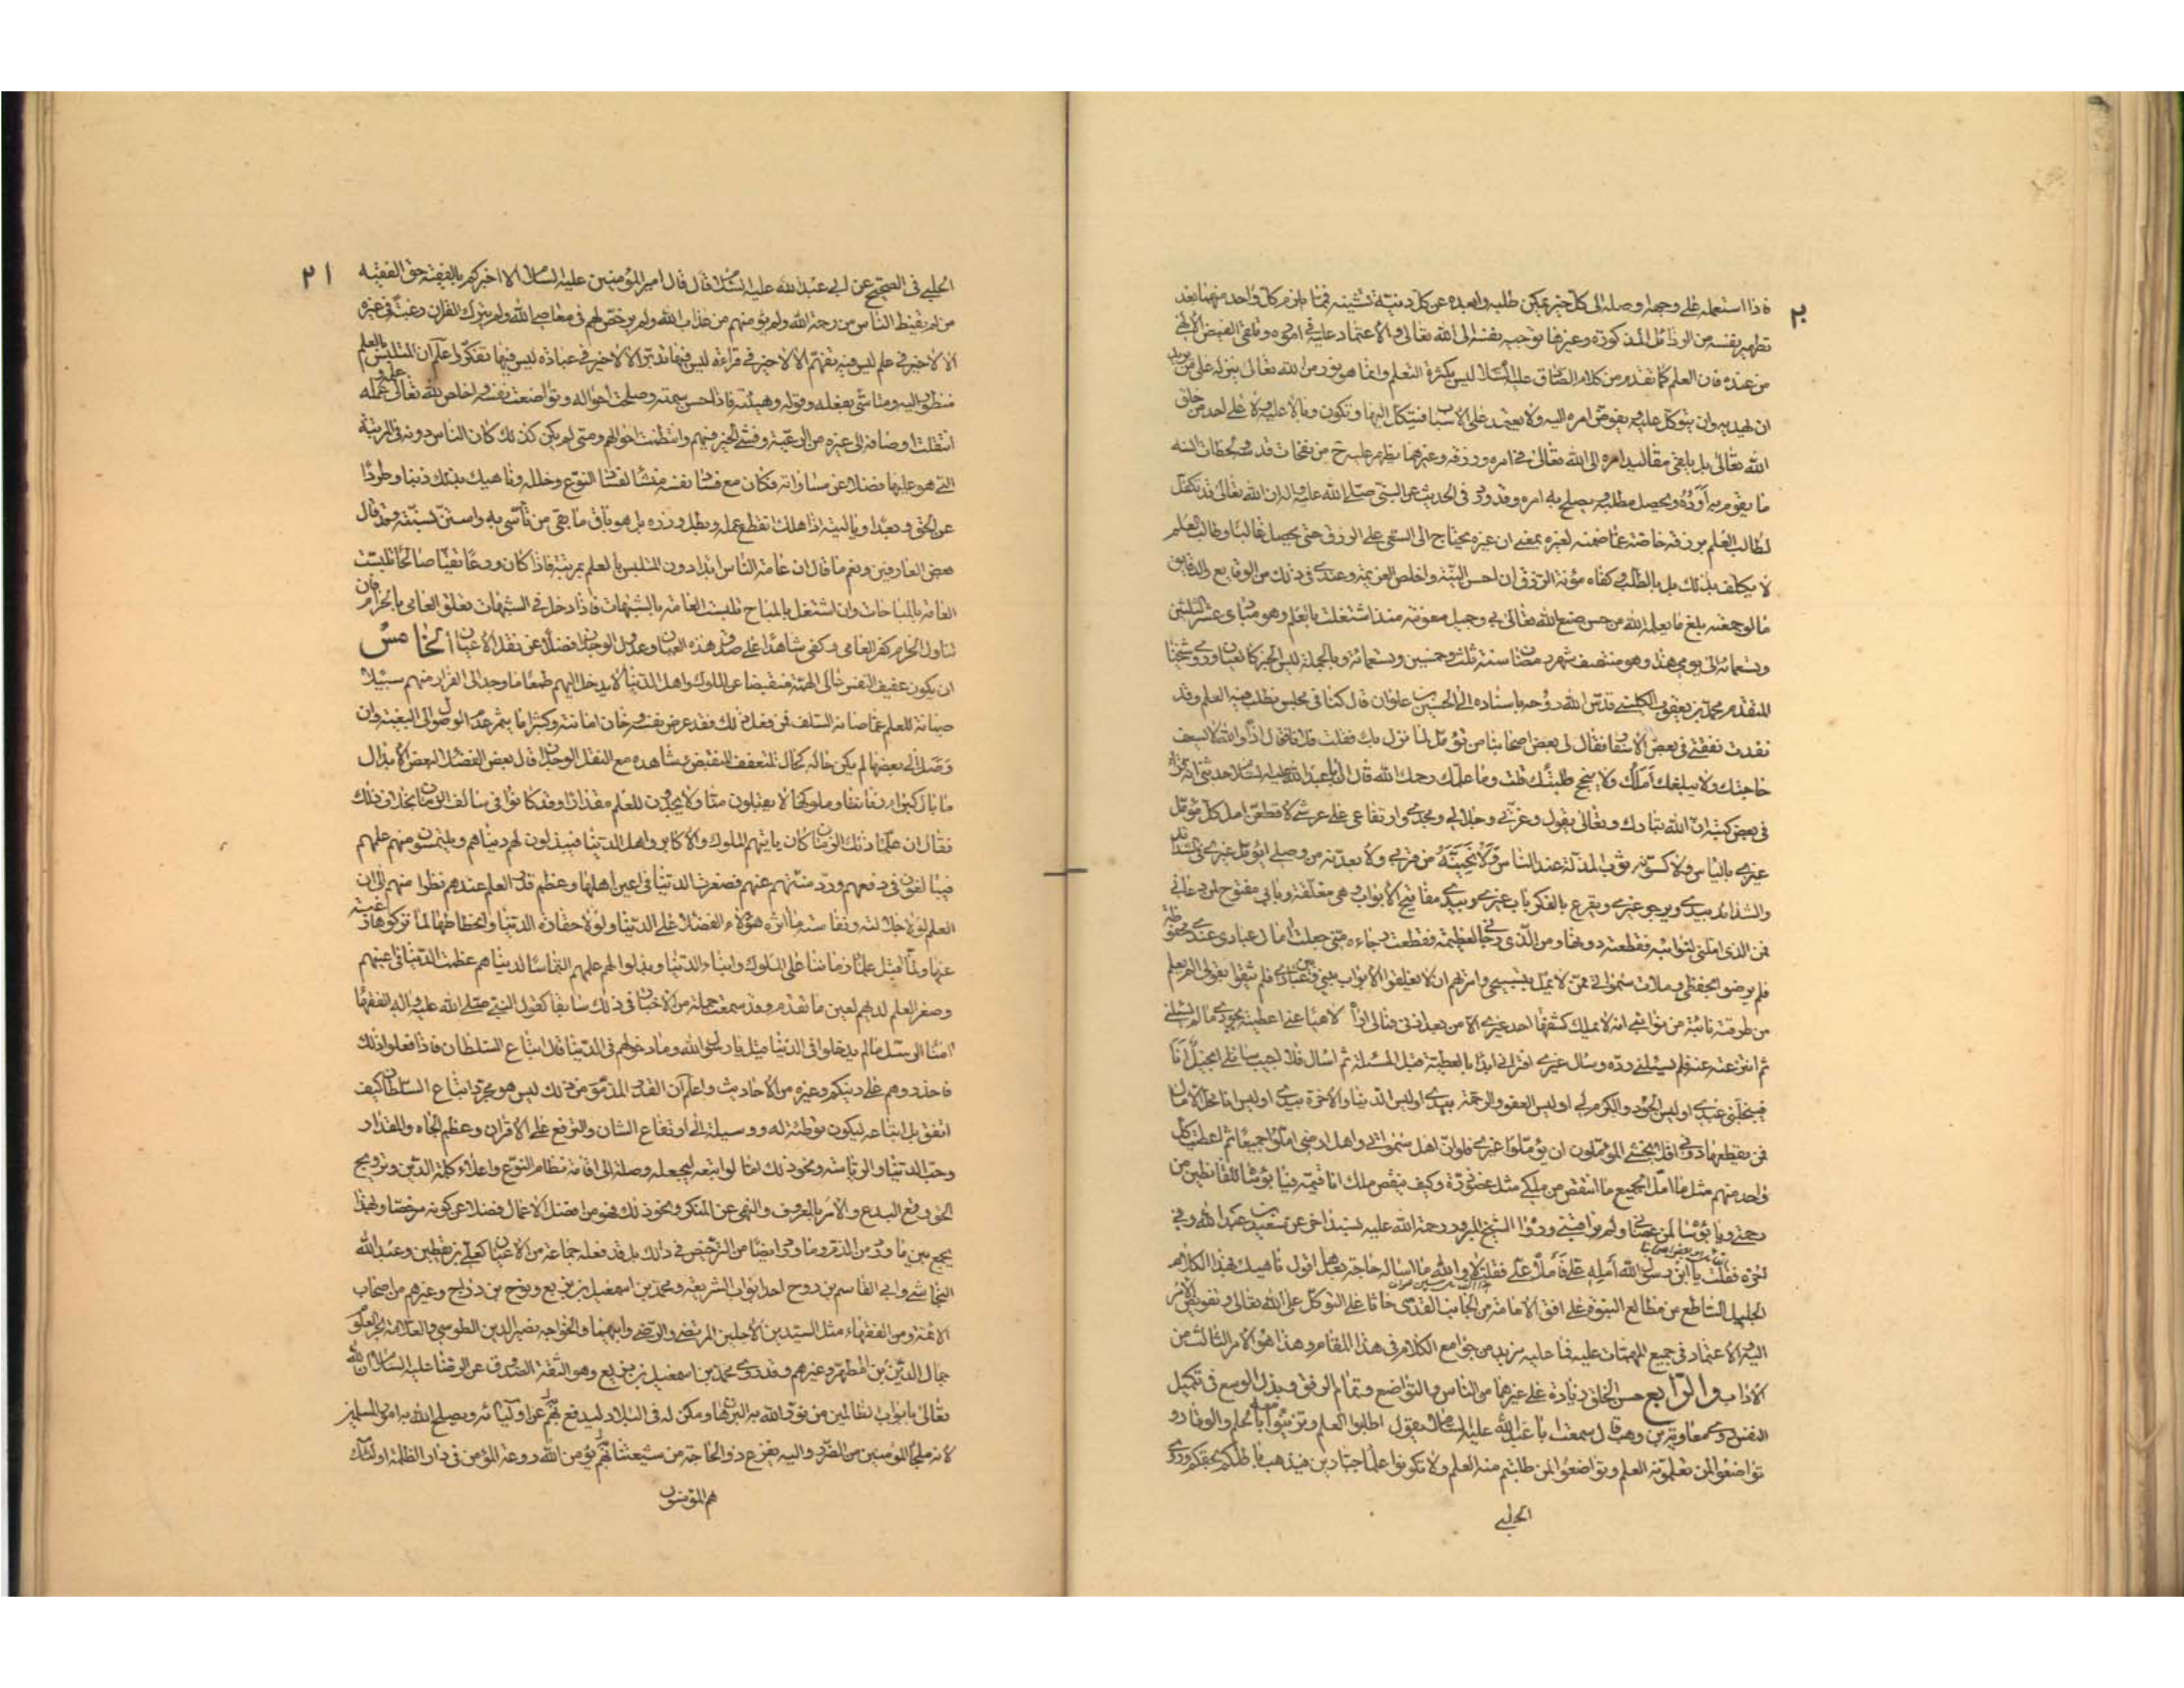 ٢٠
فاذا استعمله على وجهه اوصله الى كل خير يمكن طلبه وابعده عن كل دنيّة تشينه فمما يلزم كل واحد منهما بعد
تطهير نفسه من الرذائل المذكورة وغيرها توجيه نفسه الى الله تعالى والاعتماد عليه في اموره وتلقى الفيض الالهي
من عنده فان العلم كما تقدم من كلام الصادق عليه السلام ليس بكثرة التعلم وانما هو نور من الله تعالى ينزله على من يريد
ان يهديه وان يتوكل عليه ويفوض امره اليه ولا يعتمد على الاسباب فيتكل اليها وتكون وبالا عليه ولا على احد من خلق
الله تعالى بل يلقى مقاليد امره الى الله تعالى في امره ورزقه وغيرهما يظهر عليه ح من نفحات قدسه ولحظات انسه
ما يقوم به اَوَدُه ويحصل مطلبه ويصلح به امره وقد ورد في الحديث عن النبي صلى الله عليه واله ان الله تعالى قد تكفل
لطالب العلم برزقه خاصة عما ضمنه لغيره بمعنى ان غيره يحتاج الى السعي على الرزق حتى يحصل غالبا وطالب العلم
لا يكلف بذلك بل بالطلب وكفاه مؤنة الرزق ان احسن النية واخلص العزيمة وعندي في ذلك من الوقايع والدقايق
ما لو جمعته بلغ ما يعلمه الله من حسن صنع الله تعالى بي وجميل معونته منذ اشتغلت بالعلم وهو مبادى عشر الثلثين
وتسعمائة الى يومي هذا وهو منتصف شهر رمضان سنة ثلث وخمسين وتسعمائة وبالجملة ليس الخبر كالعيان وروى شيخنا
المتقدم محمد بن يعقوب الكليني قدس الله روحه باسناده الى الحسين بن علوان قال كنا في مجلس نطلب فيه العلم وقد
نفدت نفقتي في بعض الاسفار فقال لى بعض اصحابنا من تؤمل لما نزل بك فقلت فلانا فقال اذا والله لا تسعف
حاجتك ولا يبلغك املك ولا ينجح طلبتك قلت وما علمك رحمك الله قال ان ابا عبد الله عليه السلام حدثني انه قرأ
في بعض كتبه ان الله تبارك وتعالى يقول وعزتي وجلالي ومجدي وارتفاعي على عرشي لاقطعن امل كل مؤمل
غيري بالياس ولاكسونه ثوب المذلة عند الناس ولانحينه من قربي ولابعدنه من وصلي ايؤمل غيري في الشدائد
والشدائد بيدي ويرجو غيري ويقرع بالفكر باب غيري وبيدي مفاتيح الابواب وهي مغلقة وبابي مفتوح لمن دعاني
فمن الذى املني لنوائبه فقطعته دونها ومن الذي رجاني لعظيمة فقطعت رجاءه مني جعلت امال عبادي عندي محفوظة
فلم يرضوا بحفظي وملات سمواتي ممن لا يمل من تسبيحي وامرتهم ان لا يغلقوا الابواب بيني وبين عبادي فلم يثقوا بقولي الم يعلم
من طرقته نائبة من نوائبي انه لا يملك كشفها احد غيري الا من بعد اذني فمالي اراه لاهيا عني اعطيته بجودي ما لم يسئلني
ثم انتزعته عنه فلم يسئلني رده وسال غيري افتراني ابدا بالعطية قبل المسئلة ثم اسال فلا اجيب سائلي ابخيل انا
فيبخلني عبدي اوليس الجود والكرم لي اوليس العفو والرحمة بيدي اوليس الدنيا والآخرة بيدي اوليس انا محل الآمال
فمن يقطعها دوني افلا يخشى المؤملون ان يؤملوا غيري فلو ان اهل سمواتي واهل ارضي املوا جميعا ثم اعطيت كل
واحد منهم مثل ما امل الجميع ما انتقص من ملكي مثل عضو ذرة وكيف ينقص ملك انا قيمه فيا بؤسا للقانطين من
رحمتي ويا بؤسا لمن عصاني ولم يراقبني وروى الشيخ المبرور رحمة الله عليه بسند اخر عن سعيد بن عبد الرحمن وفي
آخره فقلت يا ابن رسول الله أمله علي فاملاه علي فقلت لا والله ما اساله حاجة بعدها اقول ناهيك بهذا الكلام
الجليل الساطع من مطالع النبوة على افق الامامة من الجانب القدسي حاثا على التوكل على الله تعالى وتفويض الامر
اليه والاعتماد في جميع المهمات عليه فما عليه مزيد من جوامع الكلام في هذا المقام وهذا هو الامر الثالث من
الاداب والرابع حسن الخلق زيادة على غيرهما من الناس والتواضع وتمام الرفق وبذل الوسع في تكميل
النفس روى معاوية بن وهب قال سمعت ابا عبد الله عليه السلام يقول اطلبوا العلم وتزينوا معه بالحلم والوقار و
تواضعوا لمن تعلمونه العلم وتواضعوا لمن طلبتم منه العلم ولا تكونوا علماء جبارين فيذهب باطلكم بحقكم وروى
الحلبي
٢١
الحلبي في الصحيح عن ابي عبد الله عليه السلام قال قال امير المؤمنين عليه السلام الا اخبركم بالفقيه حق الفقيه
من لم يقنط الناس من رحمة الله ولم يؤمنهم من عذاب الله ولم يرخص لهم في معاصي الله ولم يترك القران رغبة في غيره
الا لا خير في علم ليس فيه تفهم الا لا خير في قراءة ليس فيها تدبر الا لا خير في عبادة ليس فيها تفكر واعلم ان المتلبس بالعلم
منظور اليه ومتاسّى بفعله وقوله وهيئته فاذا حسن سمته وصلحت احواله وتواضعت نفسه واخلص لله تعالى علمه وعمله
انتقلت اوصافه الى غيره من الرعية وفشى الخير فيهم وانتظمت احوالهم ومتى لم يكن كذلك كان الناس دونه في المرتبة
التي هو عليها فضلا عن مساواته فكان مع فساد نفسه منشا لفساد النوع وخلله وناهيك بذلك ذنبا وطردا
عن الحق وبعدا ويا ليته اذا هلك انقطع عمله وبطل وزره بل هو باق ما بقى من تأسى به واستن بسنته وقد قال
بعض العارفين ونعم ما قال ان عامة الناس ابدا دون المتلبس بالعلم بمرتبة فاذا كان ورعا تقيا صالحا تلبست
العامة بالمباحات وان اشتغل بالمباح تلبست العامة بالشبهات فاذا دخل في الشبهات تعلق العامي بالحرام فان
تناول الحرام كفر العامى وكفى شاهدا على صدق هذه العيان وعدول الوجدان فضلا عن نقل الاعيان الخامس
ان يكون عفيف النفس عالى الهمة منقبضا عن الملوك واهل الدنيا لا يدخل اليهم طمعا ما وجد الى الفرار منهم سبيلا
صيانة للعلم عما صانه السلف فمن فعل ذلك فقد عرض نفسه وخان امانته وكثيرا ما يثمر عدم الوصول الى البغية وان
وصل الى بعضها لم يكن حاله كحال المتعفف المنقبض وشاهده مع النقل الوجدان قال بعض الفضلاء لبعض الابدال
ما بال كبراء زماننا وملوكها لا يقبلون منا ولا يجدون للعلم مقدارا وقد كانوا في سالف الزمان بخلاف ذلك
فقال ان علماء ذلك الزمان كان ياتيهم الملوك والاكابر واهل الدنيا فيبذلون لهم دنياهم ويلتمسون منهم علمهم
فيبالغون في دفعهم ورد منتهم عنهم فصغرت الدنيا في اعين اهلها وعظم قدر العلم عندهم نظرا منهم الى ان
العلم لولا جلالته ونفاسته ما اثره هؤلاء الفضلاء على الدنيا ولولا حقارة الدنيا وانحطاطها لما تركوها رغبة
عنها ولما اقبل علماء زماننا على الملوك وابناء الدنيا وبذلوا لهم علمهم التماسا لدنياهم عظمت الدنيا في اعينهم
وصغر العلم لديهم لعين ما تقدم وقد سمعت جملة من الاخبار في ذلك سابقا كقول النبي صلى الله عليه واله الفقهاء
امناء الرسل ما لم يدخلوا في الدنيا قيل يا رسول الله وما دخولهم في الدنيا قال اتباع السلطان فاذا فعلوا ذلك
فاحذروهم على دينكم وغيره من الاحاديث واعلم ان القدر المذموم من ذلك ليس هو مجرد اتباع السلطان كيف
اتفق بل اتباعه ليكون توطئة له ووسيلة الى ارتفاع الشان والترفع على الاقران وعظم الجاه والمقدار
وحب الدنيا والرياسة ونحو ذلك اما لو اتبعه ليجعله وصلة الى اقامة نظام النوع واعلاء كلمة الدين وترويج
الحق وقمع البدع والامر بالمعروف والنهي عن المنكر ونحو ذلك فهو من افضل الاعمال فضلا عن كونه مرخصا ولهذا
يجمع بين ما ورد من الذم وما ورد ايضا من الترخيص في ذلك بل قد فعله جماعة من الاعيان كعلي بن يقطين وعبد الله
النجاشي وابي القاسم بن روح احد ابواب الشريفة ومحمد بن اسمعيل بن بزيع ونوح بن دراج وغيرهم من اصحاب
الائمة ومن الفقهاء مثل السيدين الاجلين المرتضى والرضي وابيهما والخواجه نصير الدين الطوسي والعلامة بحر العلوم
جمال الدين بن المطهر وغيرهم وقد روى محمد بن اسمعيل بن بزيع وهو الثقة الصدوق عن الرضا عليه السلام ان لله
تعالى بابواب الظالمين من نور الله به البرهان ومكن له في البلاد ليدفع بهم عن اوليائه ويصلح الله به امور المسلمين
لانه ملجأ المؤمنين من الضرر واليه يفزع ذو الحاجة من شيعتنا بهم يؤمن الله روعة المؤمن في دار الظلمة اولئك
هم المؤمنون